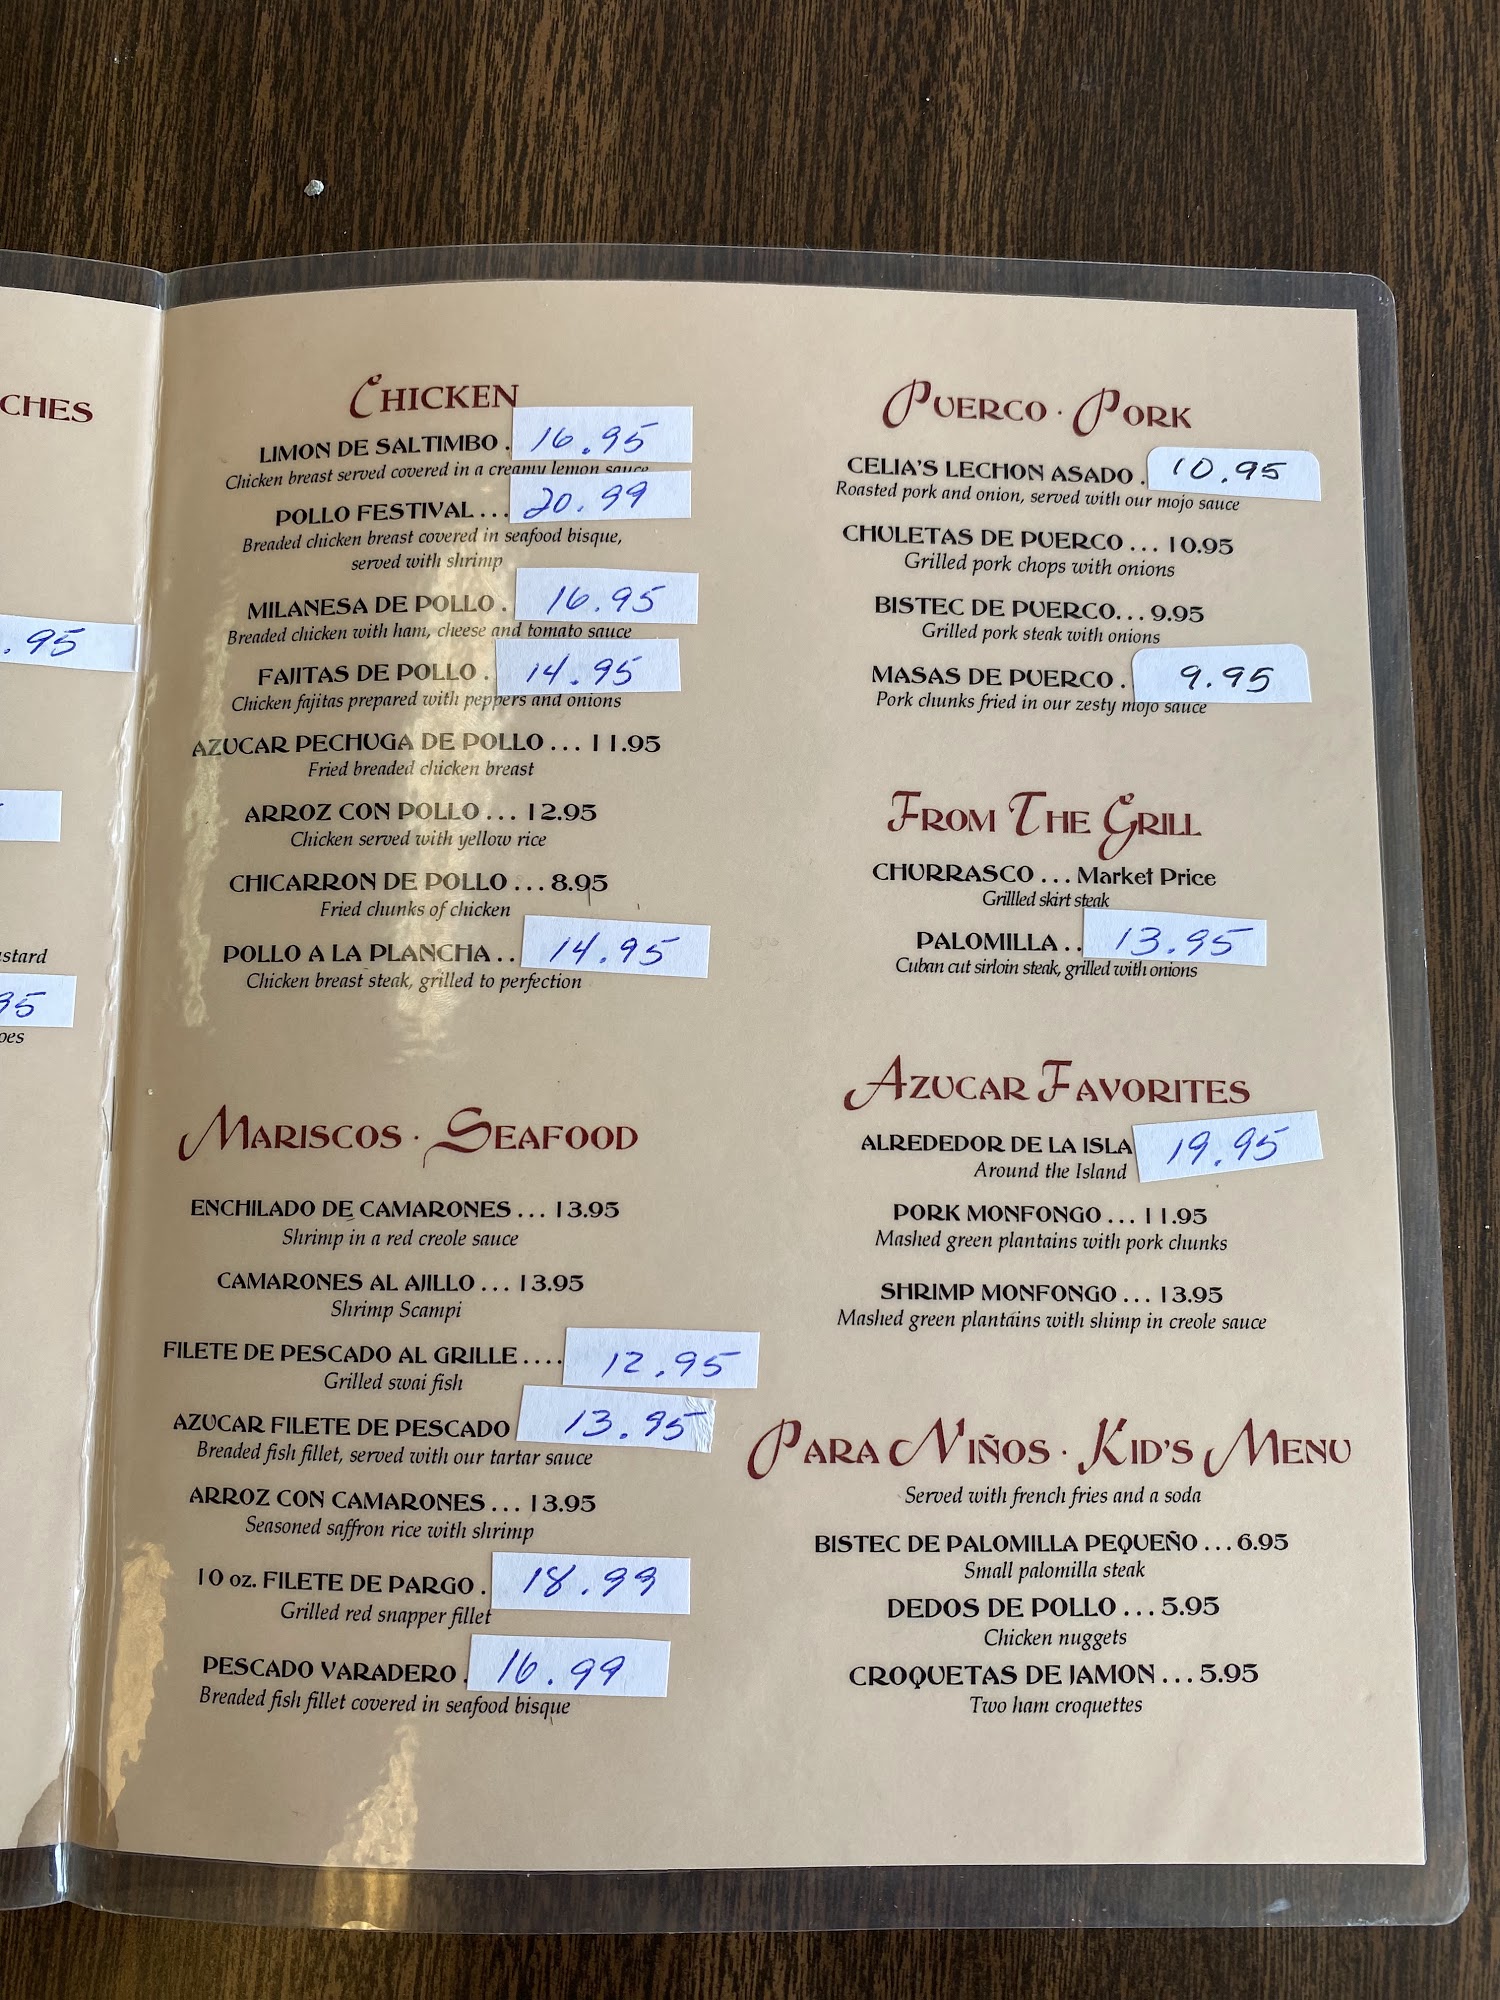 CHES
.95
stard
95
oes
CHICKEN
LIMON DE SALTIMBO . 16.95
Chicken breast served covered in a creamy lemon sauce
POLLO FESTIVAL ... 20.99
Breaded chicken breast covered in seafood bisque,
served with shrimp
MILANESA DE POLLO . 16.95
Breaded chicken with ham, cheese and tomato sauce
FAJITAS DE POLLO . 14.95
Chicken fajitas prepared with peppers and onions
AZUCAR PECHUGA DE POLLO ... 11.95
Fried breaded chicken breast
ARROZ CON POLLO ... 12.95
Chicken served with yellow rice
CHICARRON DE POLLO ... 8.95
Fried chunks of chicken
POLLO A LA PLANCHA .. 14.95
Chicken breast steak, grilled to perfection
MARISCOS · SEAFOOD
ENCHILADO DE CAMARONES ... 13.95
Shrimp in a red creole sauce
CAMARONES AL AJILLO ... 13.95
Shrimp Scampi
FILETE DE PESCADO AL GRILLE .... 12.95
Grilled swai fish
AZUCAR FILETE DE PESCADO 13.95
Breaded fish fillet, served with our tartar sauce
ARROZ CON CAMARONES ... 13.95
Seasoned saffron rice with shrimp
10 oz. FILETE DE PARGO . 18.99
Grilled red snapper fillet
PESCADO VARADERO . 16.99
Breaded fish fillet covered in seafood bisque
PUERCO · PORK
CELIA'S LECHON ASADO . 10.95
Roasted pork and onion, served with our mojo sauce
CHULETAS DE PUERCO ... 10.95
Grilled pork chops with onions
BISTEC DE PUERCO... 9.95
Grilled pork steak with onions
MASAS DE PUERCO . 9.95
Pork chunks fried in our zesty mojo sauce
FROM THE GRILL
CHURRASCO ... Market Price
Grillled skirt steak
PALOMILLA .. 13.95
Cuban cut sirloin steak, grilled with onions
AZUCAR FAVORITES
ALREDEDOR DE LA ISLA 19.95
Around the Island
PORK MONFONGO ... 11.95
Mashed green plantains with pork chunks
SHRIMP MONFONGO ... 13.95
Mashed green plantains with shimp in creole sauce
PARA NIÑOS · KID'S MENU
Served with french fries and a soda
BISTEC DE PALOMILLA PEQUEÑO ... 6.95
Small palomilla steak
DEDOS DE POLLO ... 5.95
Chicken nuggets
CROQUETAS DE JAMON ... 5.95
Two ham croquettes